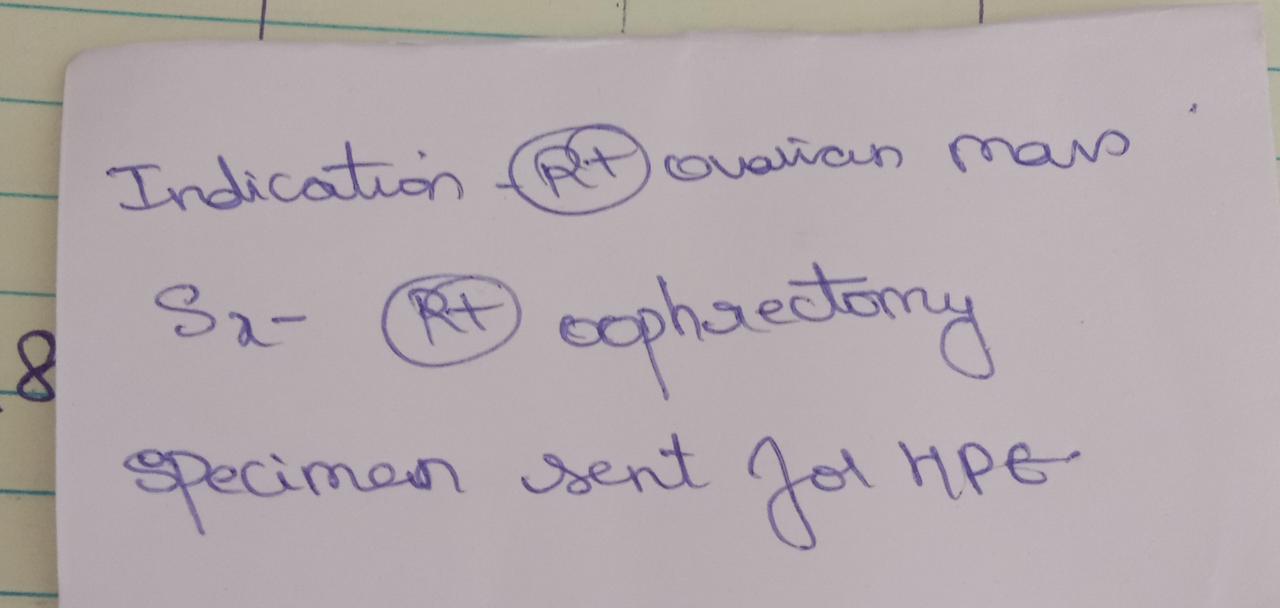 Indication - Rt ovarian mass
Sx- Rt oophrectomy
8
specimen sent for HPE